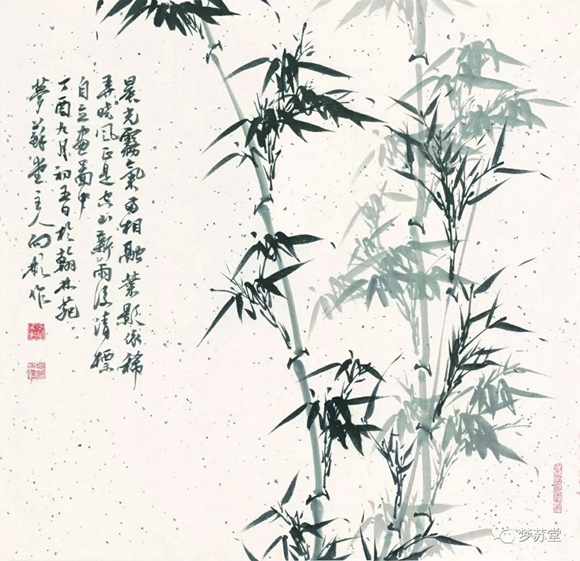 晨光霧氣两相融葉影依稀
弄晓风正是空山新雨後清標
自立画啚中
丁酉九月初五日於翰林苑
夢蘇堂主人向彬作
梦苏堂